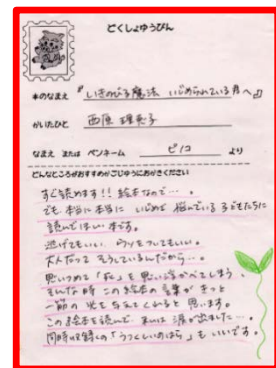 どくしょゆうびん
本のなまえ 『いきのびる魔法 いじめられている君へ』
かいたひと 西原 理恵子
なまえ または ペンネーム ピノコ より
どんなところがおすすめかじゆうにおかきください
すぐ読めます!!絵本なので…。
でも本当に本当に いじめで 悩んでいる 子どもたちに
読んでほしい本です。
逃げてもいい。ウソをついてもいい。
大人だって そうしているんだから…。
思いつめて「死」を思い浮かべてしまう、
そんな時 この絵本の言葉が きっと
一筋の 光を与えてくれると 思います。
この絵本を読んで 涙が出ました…。
同時収録の「うつくしいのはら」も いいです。